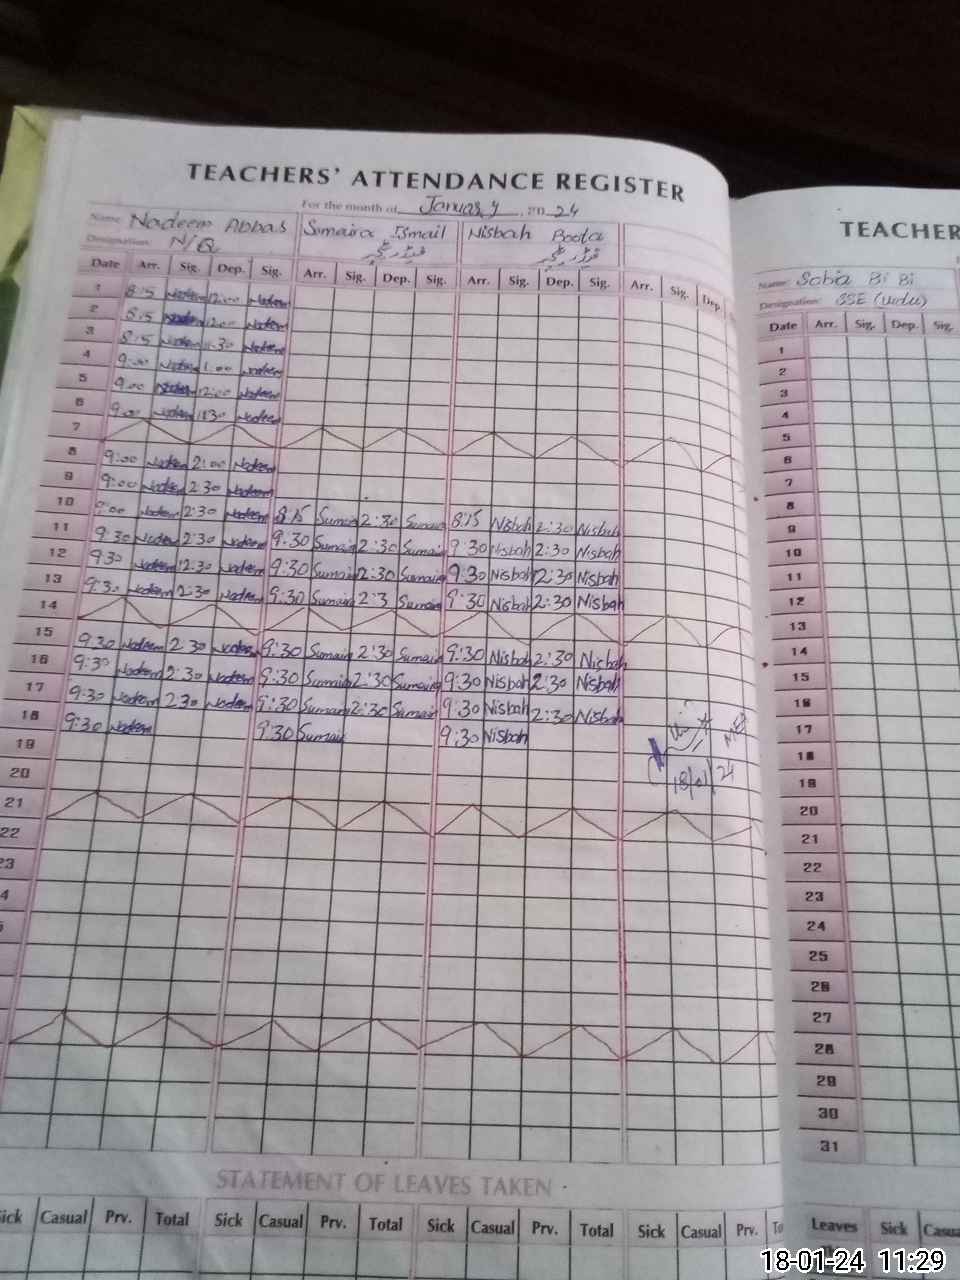 TEACHERS' ATTENDANCE REGISTER
For the month of January, 20 24
Name Nadeem Abbas Sumaira Ismail Nisbah Boota
Designation N/Q فیڈر ٹیچر فیڈر ٹیچر
Date Arr. Sig. Dep. Sig. Arr. Sig. Dep. Sig. Arr. Sig. Dep. Sig. Arr. Sig. Dep
1 8:15 Nadeem 12:00 Nadeem
2 8:15 Nadeem 12:00 Nadeem
3 8:15 Nadeem 11:30 Nadeem
4 9:00 Nadeem 1:00 Nadeem
5 9:00 Nadeem 12:00 Nadeem
6 9:00 Nadeem 11:30 Nadeem
7
8 9:00 Nadeem 2:00 Nadeem
9 9:00 Nadeem 2:30 Nadeem
10 9:00 Nadeem 2:30 Nadeem 8:15 Sumair 2:30 Sumair 8:15 Nisbah 2:30 Nisbah
11 9:30 Nadeem 2:30 Nadeem 9:30 Sumair 2:30 Sumair 9:30 Nisbah 2:30 Nisbah
12 9:30 Nadeem 12:30 Nadeem 9:30 Sumair 2:30 Sumair 9:30 Nisbah 12:30 Nisbah
13 9:30 Nadeem 2:30 Nadeem 9:30 Sumair 2:3 Sumair 9:30 Nisbah 2:30 Nisbah
14
15 9:30 Nadeem 2:30 Nadeem 9:30 Sumair 2:30 Sumair 9:30 Nisbah 2:30 Nisbah
16 9:30 Nadeem 2:30 Nadeem 9:30 Sumair 2:30 Sumair 9:30 Nisbah 2:30 Nisbah
17 9:30 Nadeem 2:30 Nadeem 9:30 Sumair 2:30 Sumair 9:30 Nisbah 2:30 Nisbah
18 9:30 Nadeem 9:30 Sumair 9:30 Nisbah
19
20
21
22
23
4
18/01/24
STATEMENT OF LEAVES TAKEN
ick Casual Prv. Total Sick Casual Prv. Total Sick Casual Prv. Total Sick Casual Prv. To
TEACHER
Name: Sobia Bi Bi
Designation: SSE (Urdu)
Date Arr. Sig. Dep. Sig.
1
2
3
4
5
6
7
8
9
10
11
12
13
14
15
16
17
18
19
20
21
22
23
24
25
26
27
28
29
30
31
Leaves Sick Casua
18-01-24 11:29